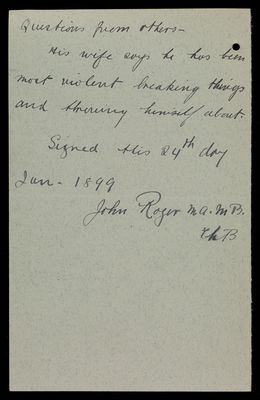 Questions from others -
His wife says he has been
most violent breaking things
and throwing himself about.
Signed this 24th day
Jan - 1899
John Roger M.A. M.B.
Ch B